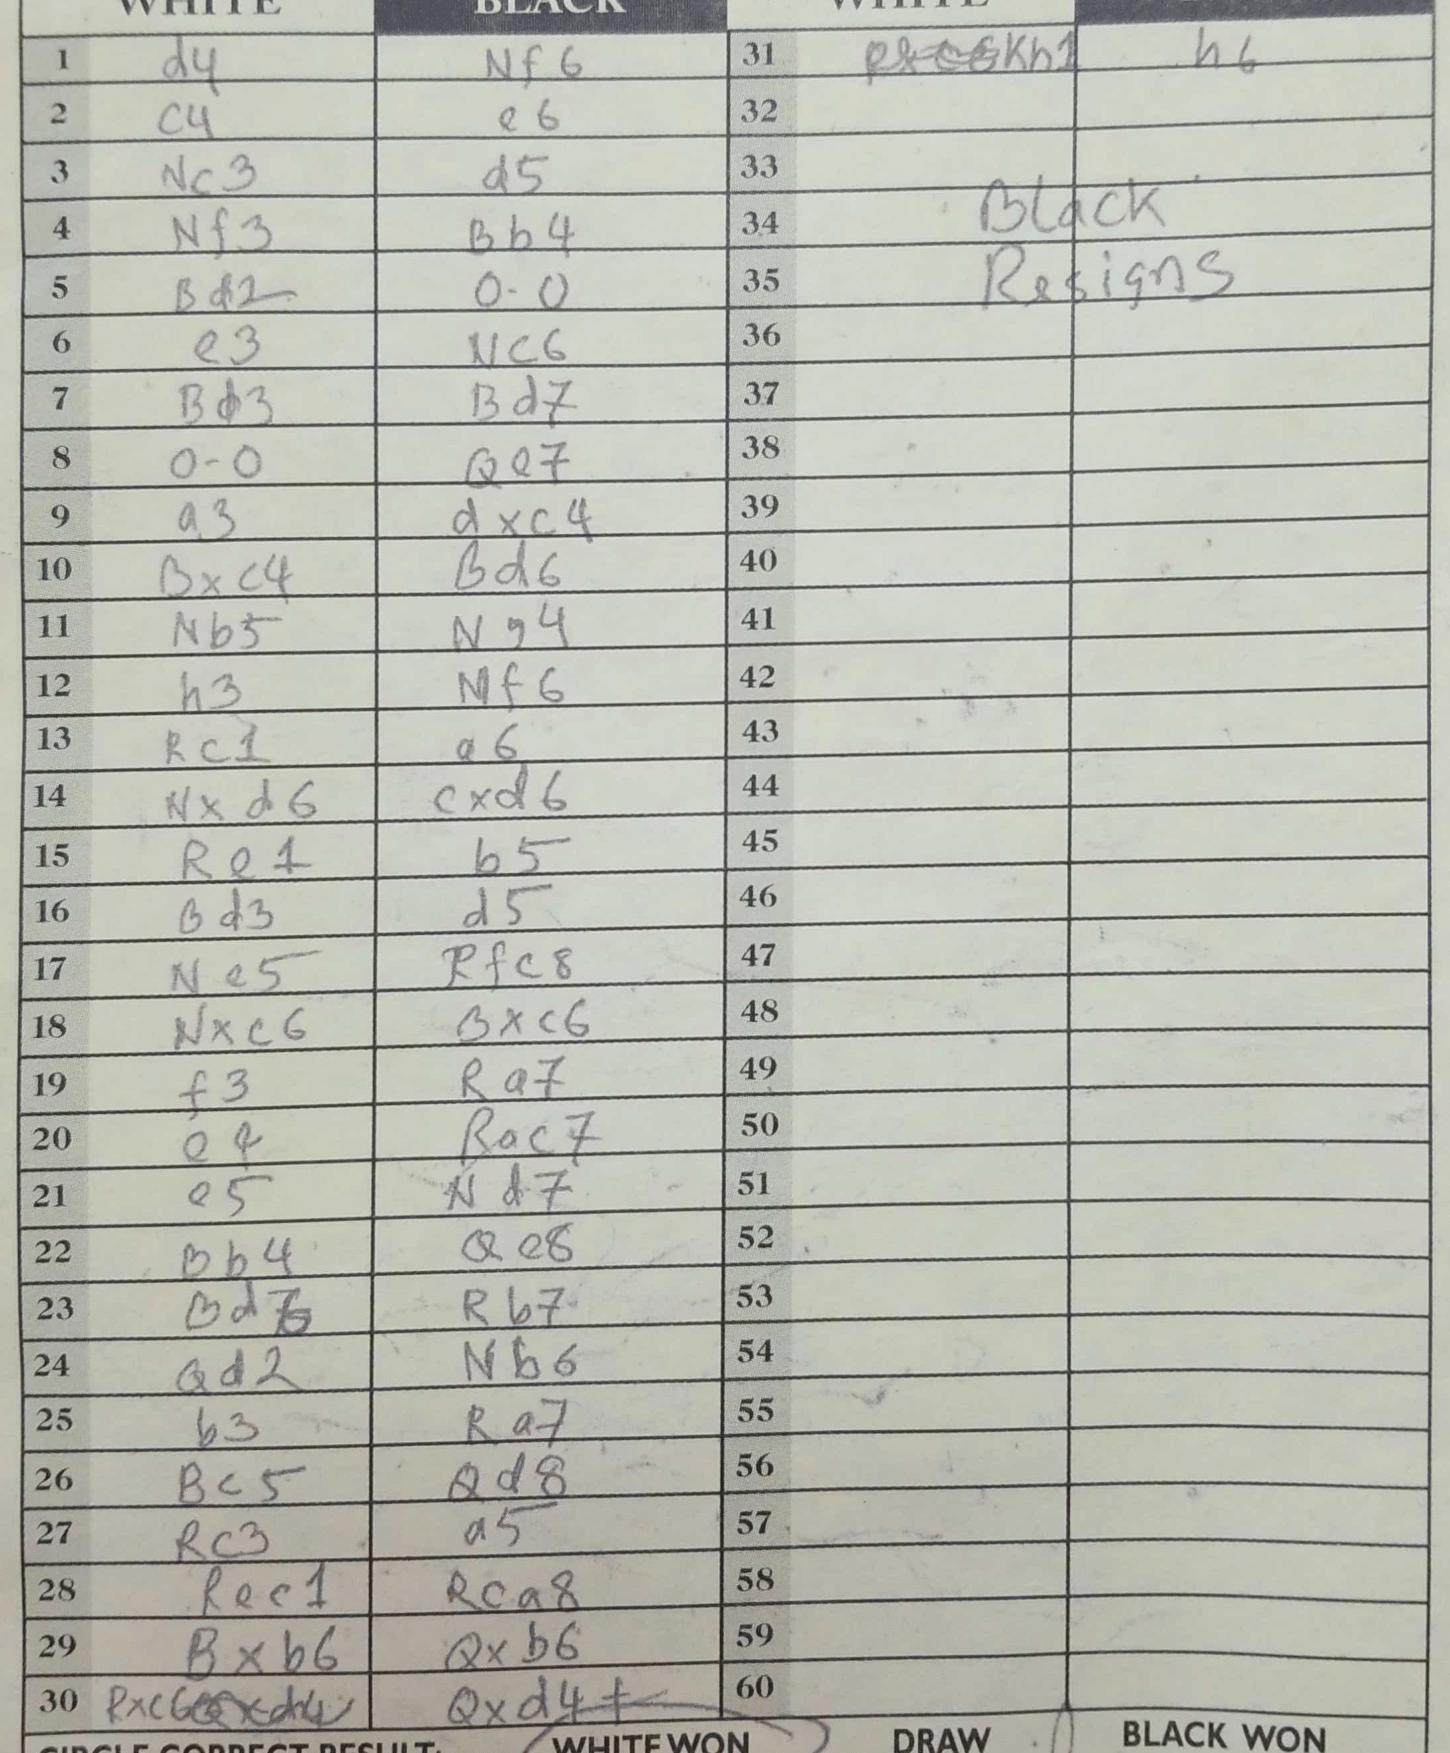 WHITE BLACK WHITE
1 d4 Nf6 31 Kh1 h6
2 c4 e6 32
3 Nc3 d5 33
4 Nf3 Bb4 34 Black
5 Bd2 0-0 35 Resigns
6 e3 Nc6 36
7 Bd3 Bd7 37
8 0-0 Qe7 38
9 a3 dxc4 39
10 Bxc4 Bd6 40
11 Nb5 Ng4 41
12 h3 Nf6 42
13 Rc1 a6 43
14 Nxd6 cxd6 44
15 Re1 b5 45
16 Bd3 d5 46
17 Ne5 Rfc8 47
18 Nxc6 Bxc6 48
19 f3 Ra7 49
20 e4 Rac7 50
21 e5 Nd7 51
22 Bb4 Qe8 52
23 Bd6 Rb7 53
24 Qd2 Nb6 54
25 b3 Ra7 55
26 Bc5 Qd8 56
27 Rc3 a5 57
28 Rec1 Rca8 58
29 Bxb6 Qxb6 59
30 Rxc6 Qxd4+ 60
CIRCLE CORRECT RESULT: WHITE WON DRAW BLACK WON